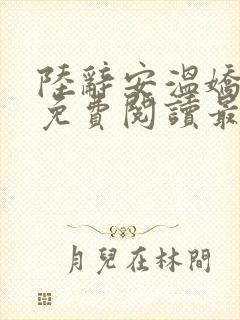 陸辭安溫嬌
免費閱讀最
月兒在林間